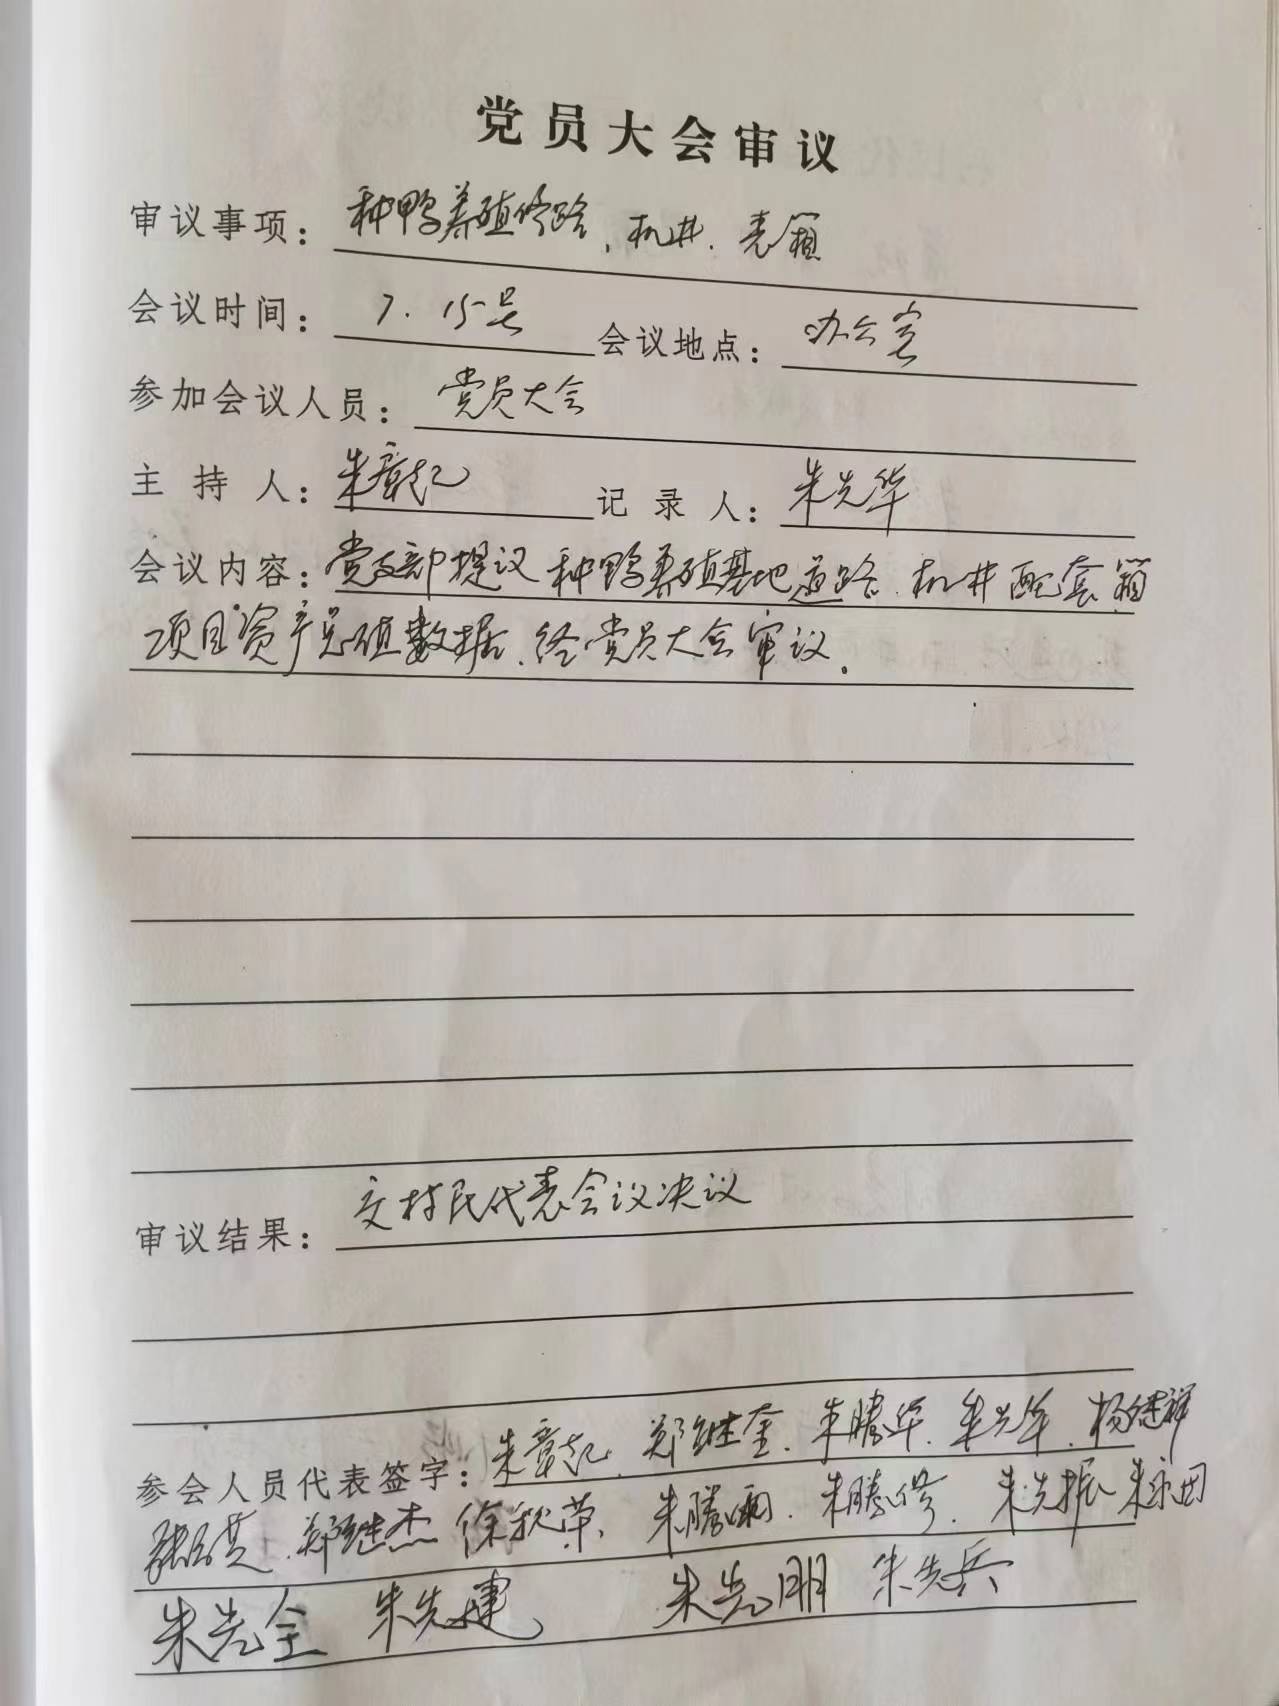 党员大会审议
审议事项：种鸭养殖修路、机井、表箱
会议时间：7.15号 会议地点：办公室
参加会议人员：党员大会
主持人：朱章起 记录人：朱先华
会议内容：党支部提议种鸭养殖基地道路、机井配套箱
项目资产总值数据、经党员大会审议。
审议结果：交村民代表会议决议
参会人员代表签字：朱章起、郑继奎、朱腾华、朱先华、杨继祥
郑继杰 徐秋荣、朱腾雨、朱先振
朱先全 朱先建 朱先明 朱先兵